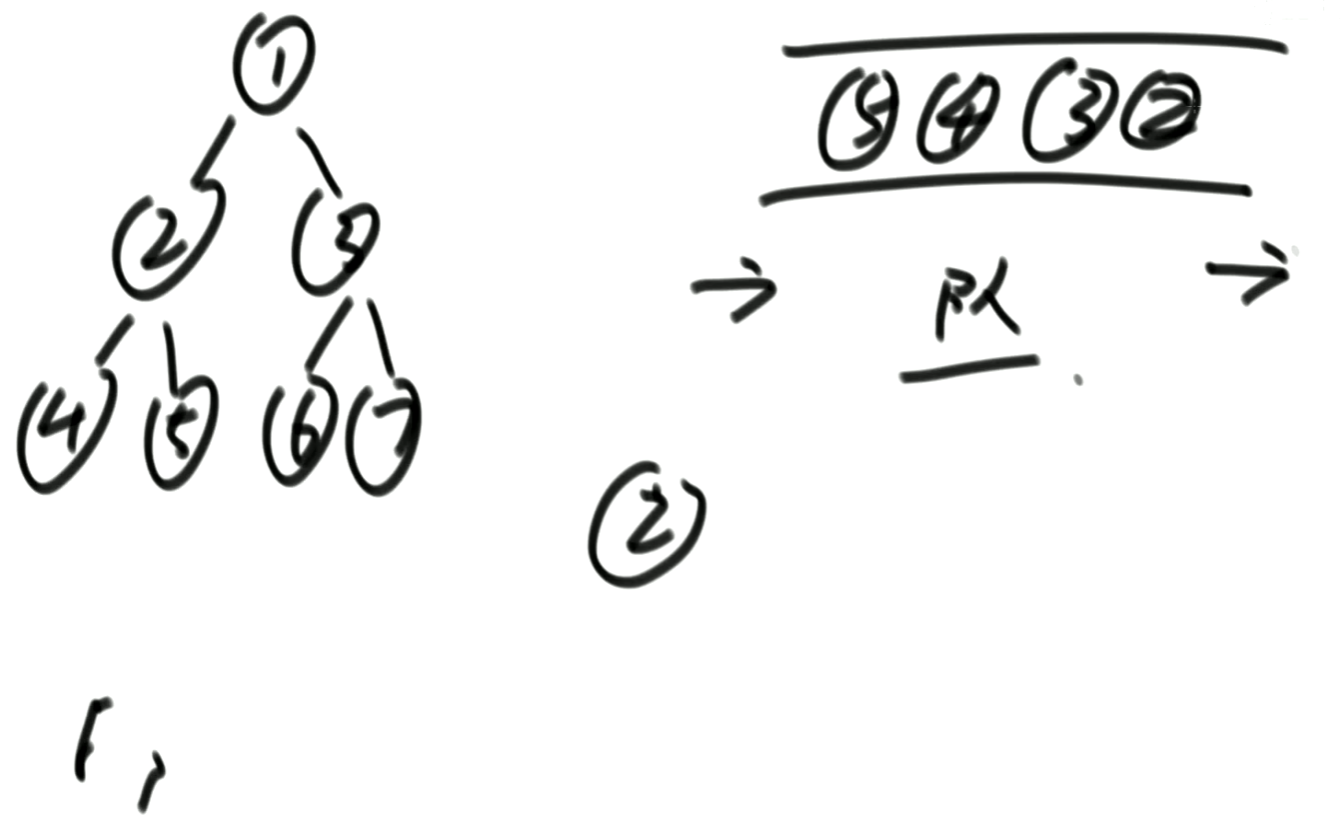 ①
② ③
④ ⑤ ⑥ ⑦
⑤ ④ ③ ②
→ 队 →
②
1,